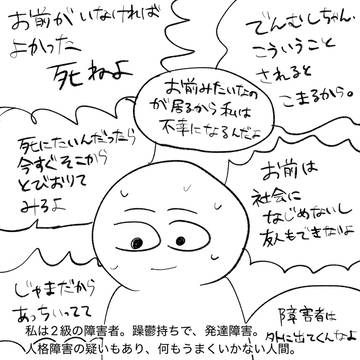 お前が いなければ
よかった
死ねよ
でんむしちゃん、
こういうこと
されると
こまるから。
お前みたいなの
が居るから私は
不幸になるんだよ
死にたいんだったら
今すぐそこから
とびおりて
みろよ
お前は
社会に
なじめないし
友人もできないよ
じゃまだから
あっちいってて
障害者は
外に出てくんなよ
私は２級の障害者。躁鬱持ちで、発達障害。
人格障害の疑いもあり、何もうまくいかない人間。